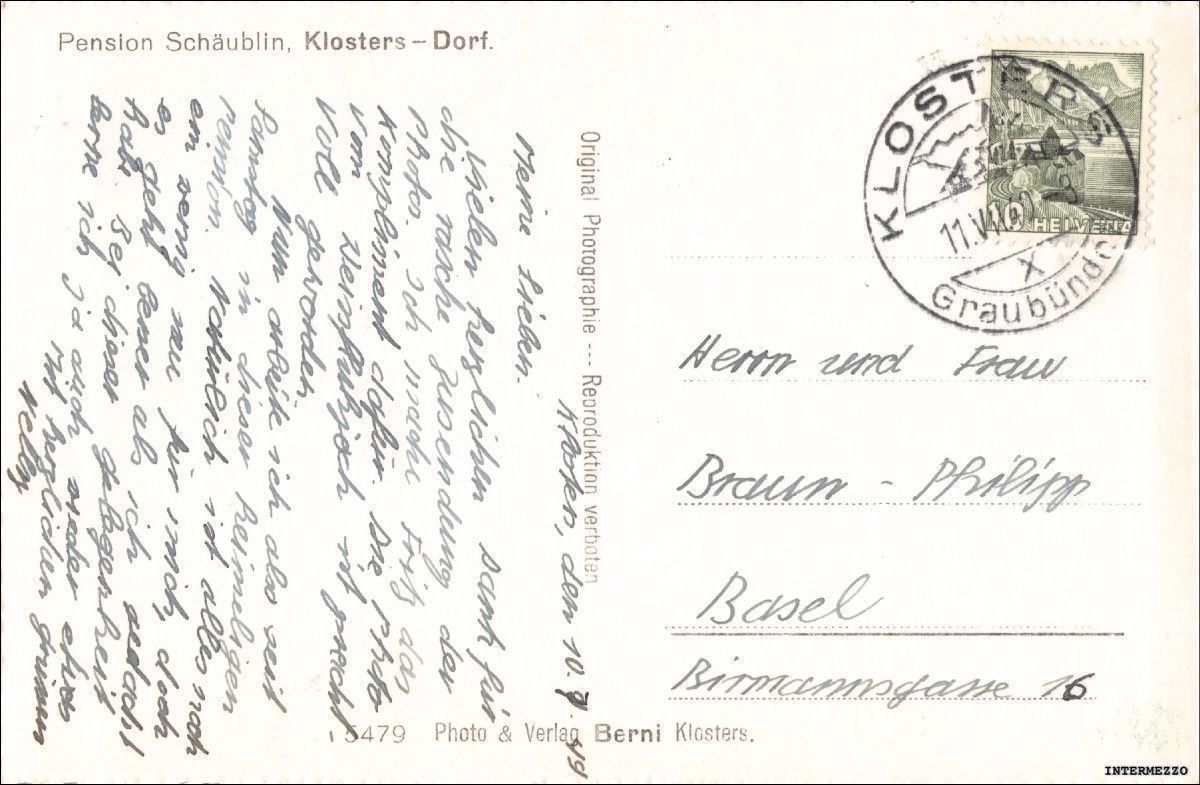 Pension Schäublin, Klosters – Dorf.
KLOSTERS
Graubünden
HELVETIA
10
X
Herrn und Frau
Braun - Philipp
Basel
Birmannsgasse 16
Original Photographie --- Reproduktion verboten
Kloster, den 10.
Meine Lieben.
Vielen herzlichen Dank für
die rasche Zusendung der
Photo. Ich mache Fritz das
Kompliment dafür. Die Photo
von Verstanisch ist pracht-
voll geworden.
Nun arbeite ich also seit
Samstag in dieser heimeligen
Pension. Natürlich ist alles noch
ein wenig neu für mich, doch
es geht besser als ich gedacht
hab. Bei dieser Gelegenheit
lerne ich ja auch wieder etwas
Mit herzlichen Grüssen
Nelly
5479 Photo & Verlag Berni Klosters.
INTERMEZZO